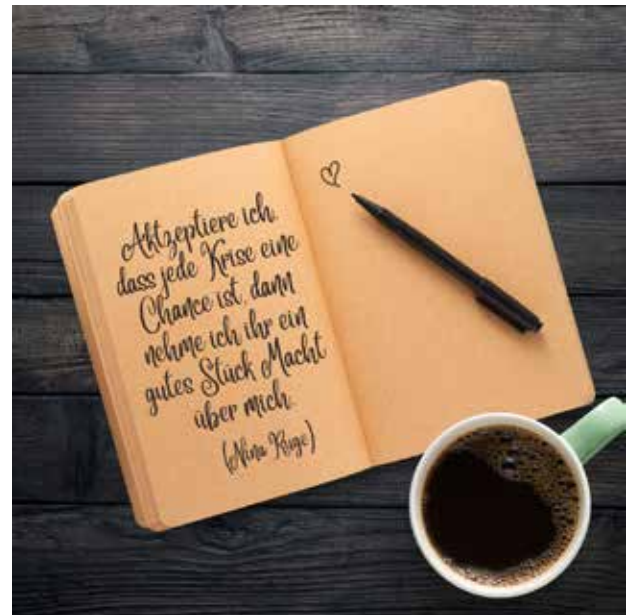 Aktzeptiere ich,
dass jede Krise eine
Chance ist, dann
nehme ich ihr ein
gutes Stück Macht
über mich.
(Nina Ruge)